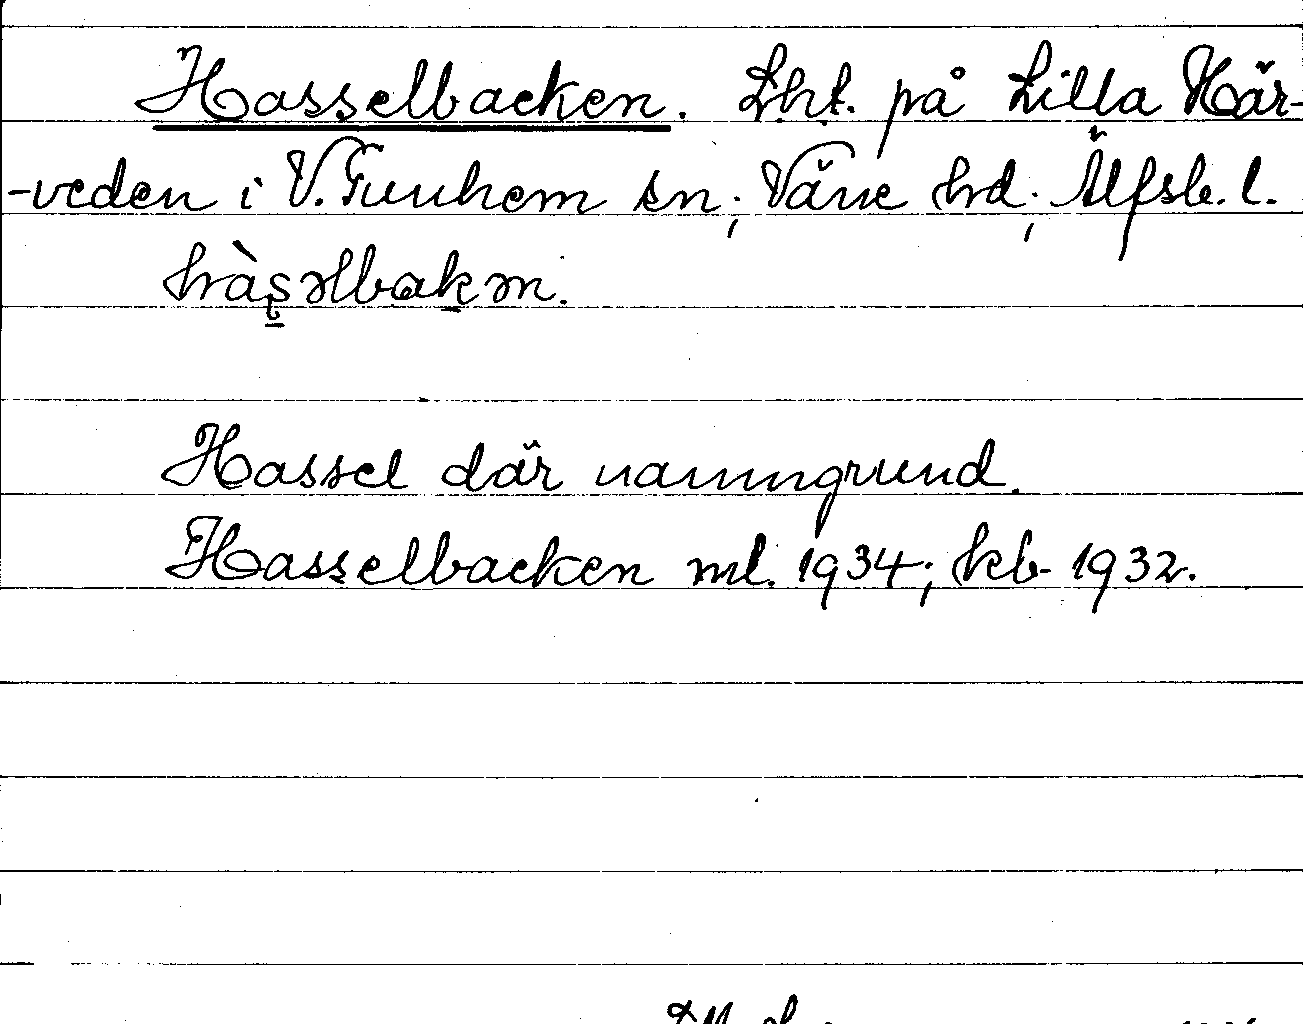 Hasselbacken. Lht. på Lilla Här-
-veden i V. Tunhem sn; Väne hd; Älfsb. l.
hàsəlbakən.
Hassel där namngrund.
Hasselbacken ml. 1934; kb 1932.